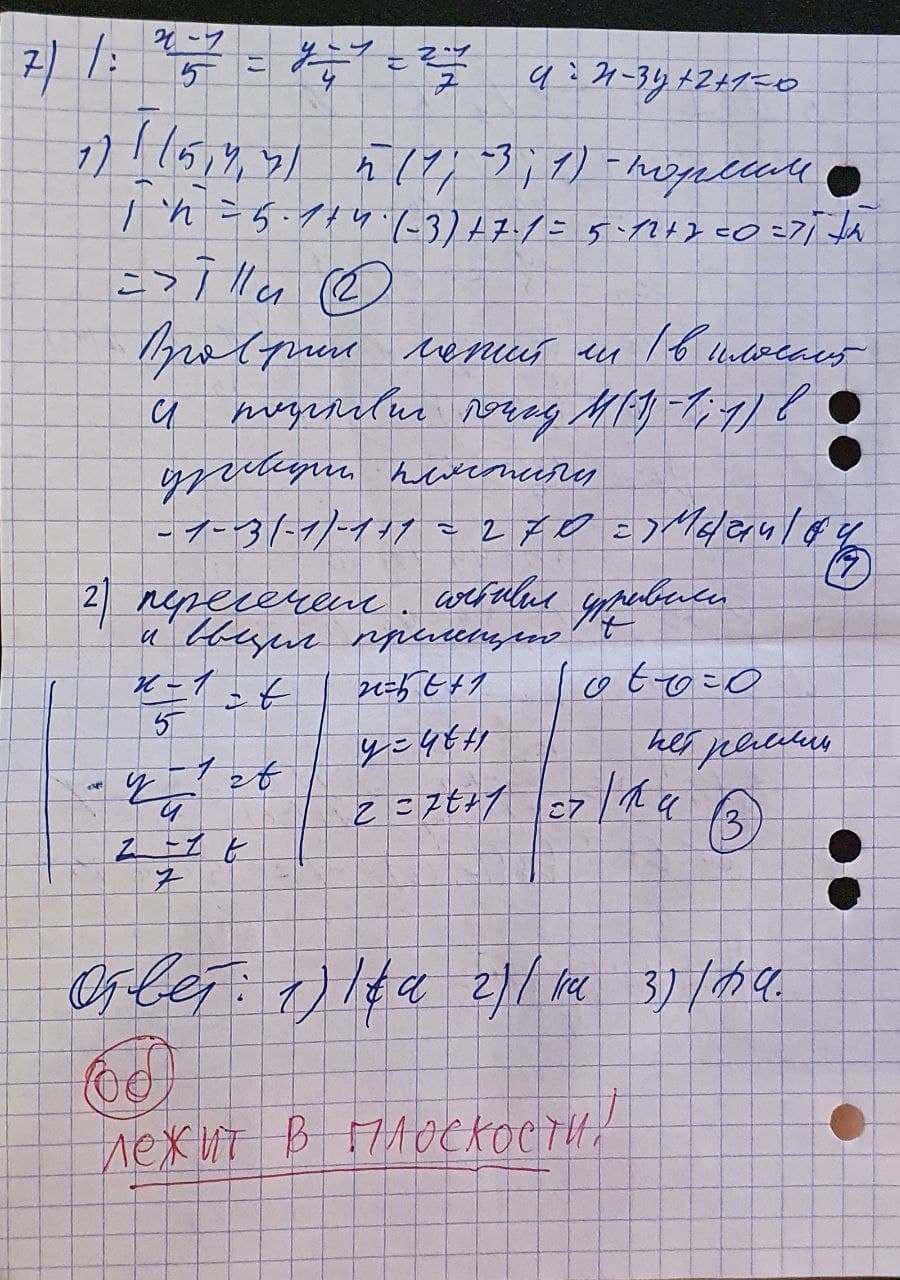 7) l: x-1/5 = y-1/4 = z-1/7 α: x-3y+z+1=0
1) l̄ (5,4,7) n̄ (1; -3; 1) - нормали
l̄·n̄ = 5·1+4·(-3)+7·1= 5-12+7=0 => l̄ ⊥ n̄
=> l̄ || α (2)
Проверим лежит ли l в плоскости
α подставив точку M(-1; -1; -1) в
уравнении плоскости
-1-3(-1)-1+1 = 2 ≠ 0 => M ∉ α и l ⊄ α
(1)
2) пересечем. составим уравнения
и введем t
x-1/5 = t x=5t+1 0t-0=0
y-1/4 = t y=4t+1 нет решении
z-1/7 t z=7t+1 => l ∦ α (3)
Ответ: 1) l ⊄ α 2) l || α 3) l ∦ α.
0б
ЛЕЖИТ В ПЛОСКОСТИ!